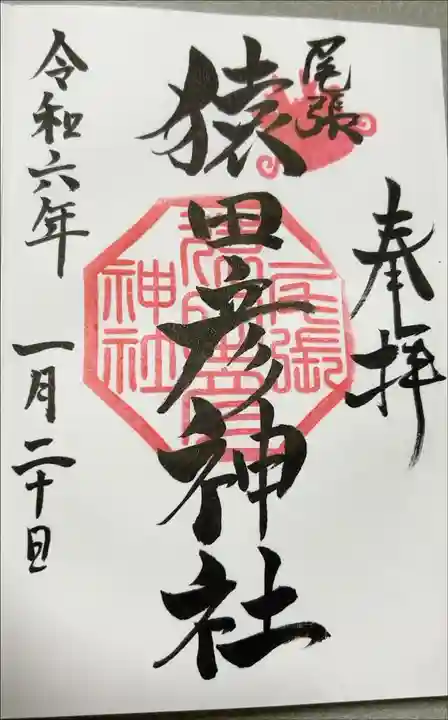 奉拝
尾張
猿田彦神社
尾張
猿田彦
神社
令和六年 一月二十日